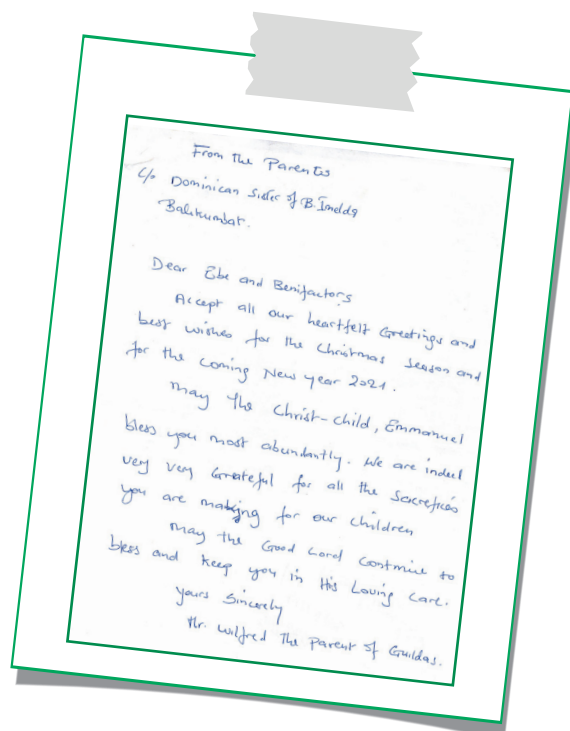 From the Parents
C/o Dominican Sister of B. Imelda
Balikumbat.
Dear Ebe and Benifactors
Accept all our heartfelt Greetings and
best wishes for the Christmas Season and
for the coming New year 2021.
may the Christ-child, Emmanuel
bless you most abundantly. We are indeed
very very Greateful for all the Sacrefices
you are making for our children
may the Good Lord Continue to
bless and keep you in His Loving Care.
yours Sincerely
Mr. Wilfred The Parent of Guildas.